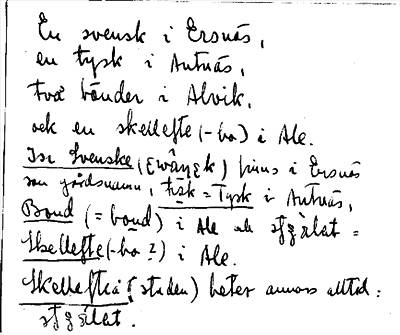 En svensk i Ersnäs,
en tysk i Antnäs,
två bönder i Alvik,
ock en skellefte (-bo) i Ale.
Svenske finns i Ersnäs
som gårdsnamn, tisk = Tysk i Antnäs,
Bond (= bond) i Ale
Skellefte (-bo?) i Ale.
Skellefteå (staden) heter annars alltid: